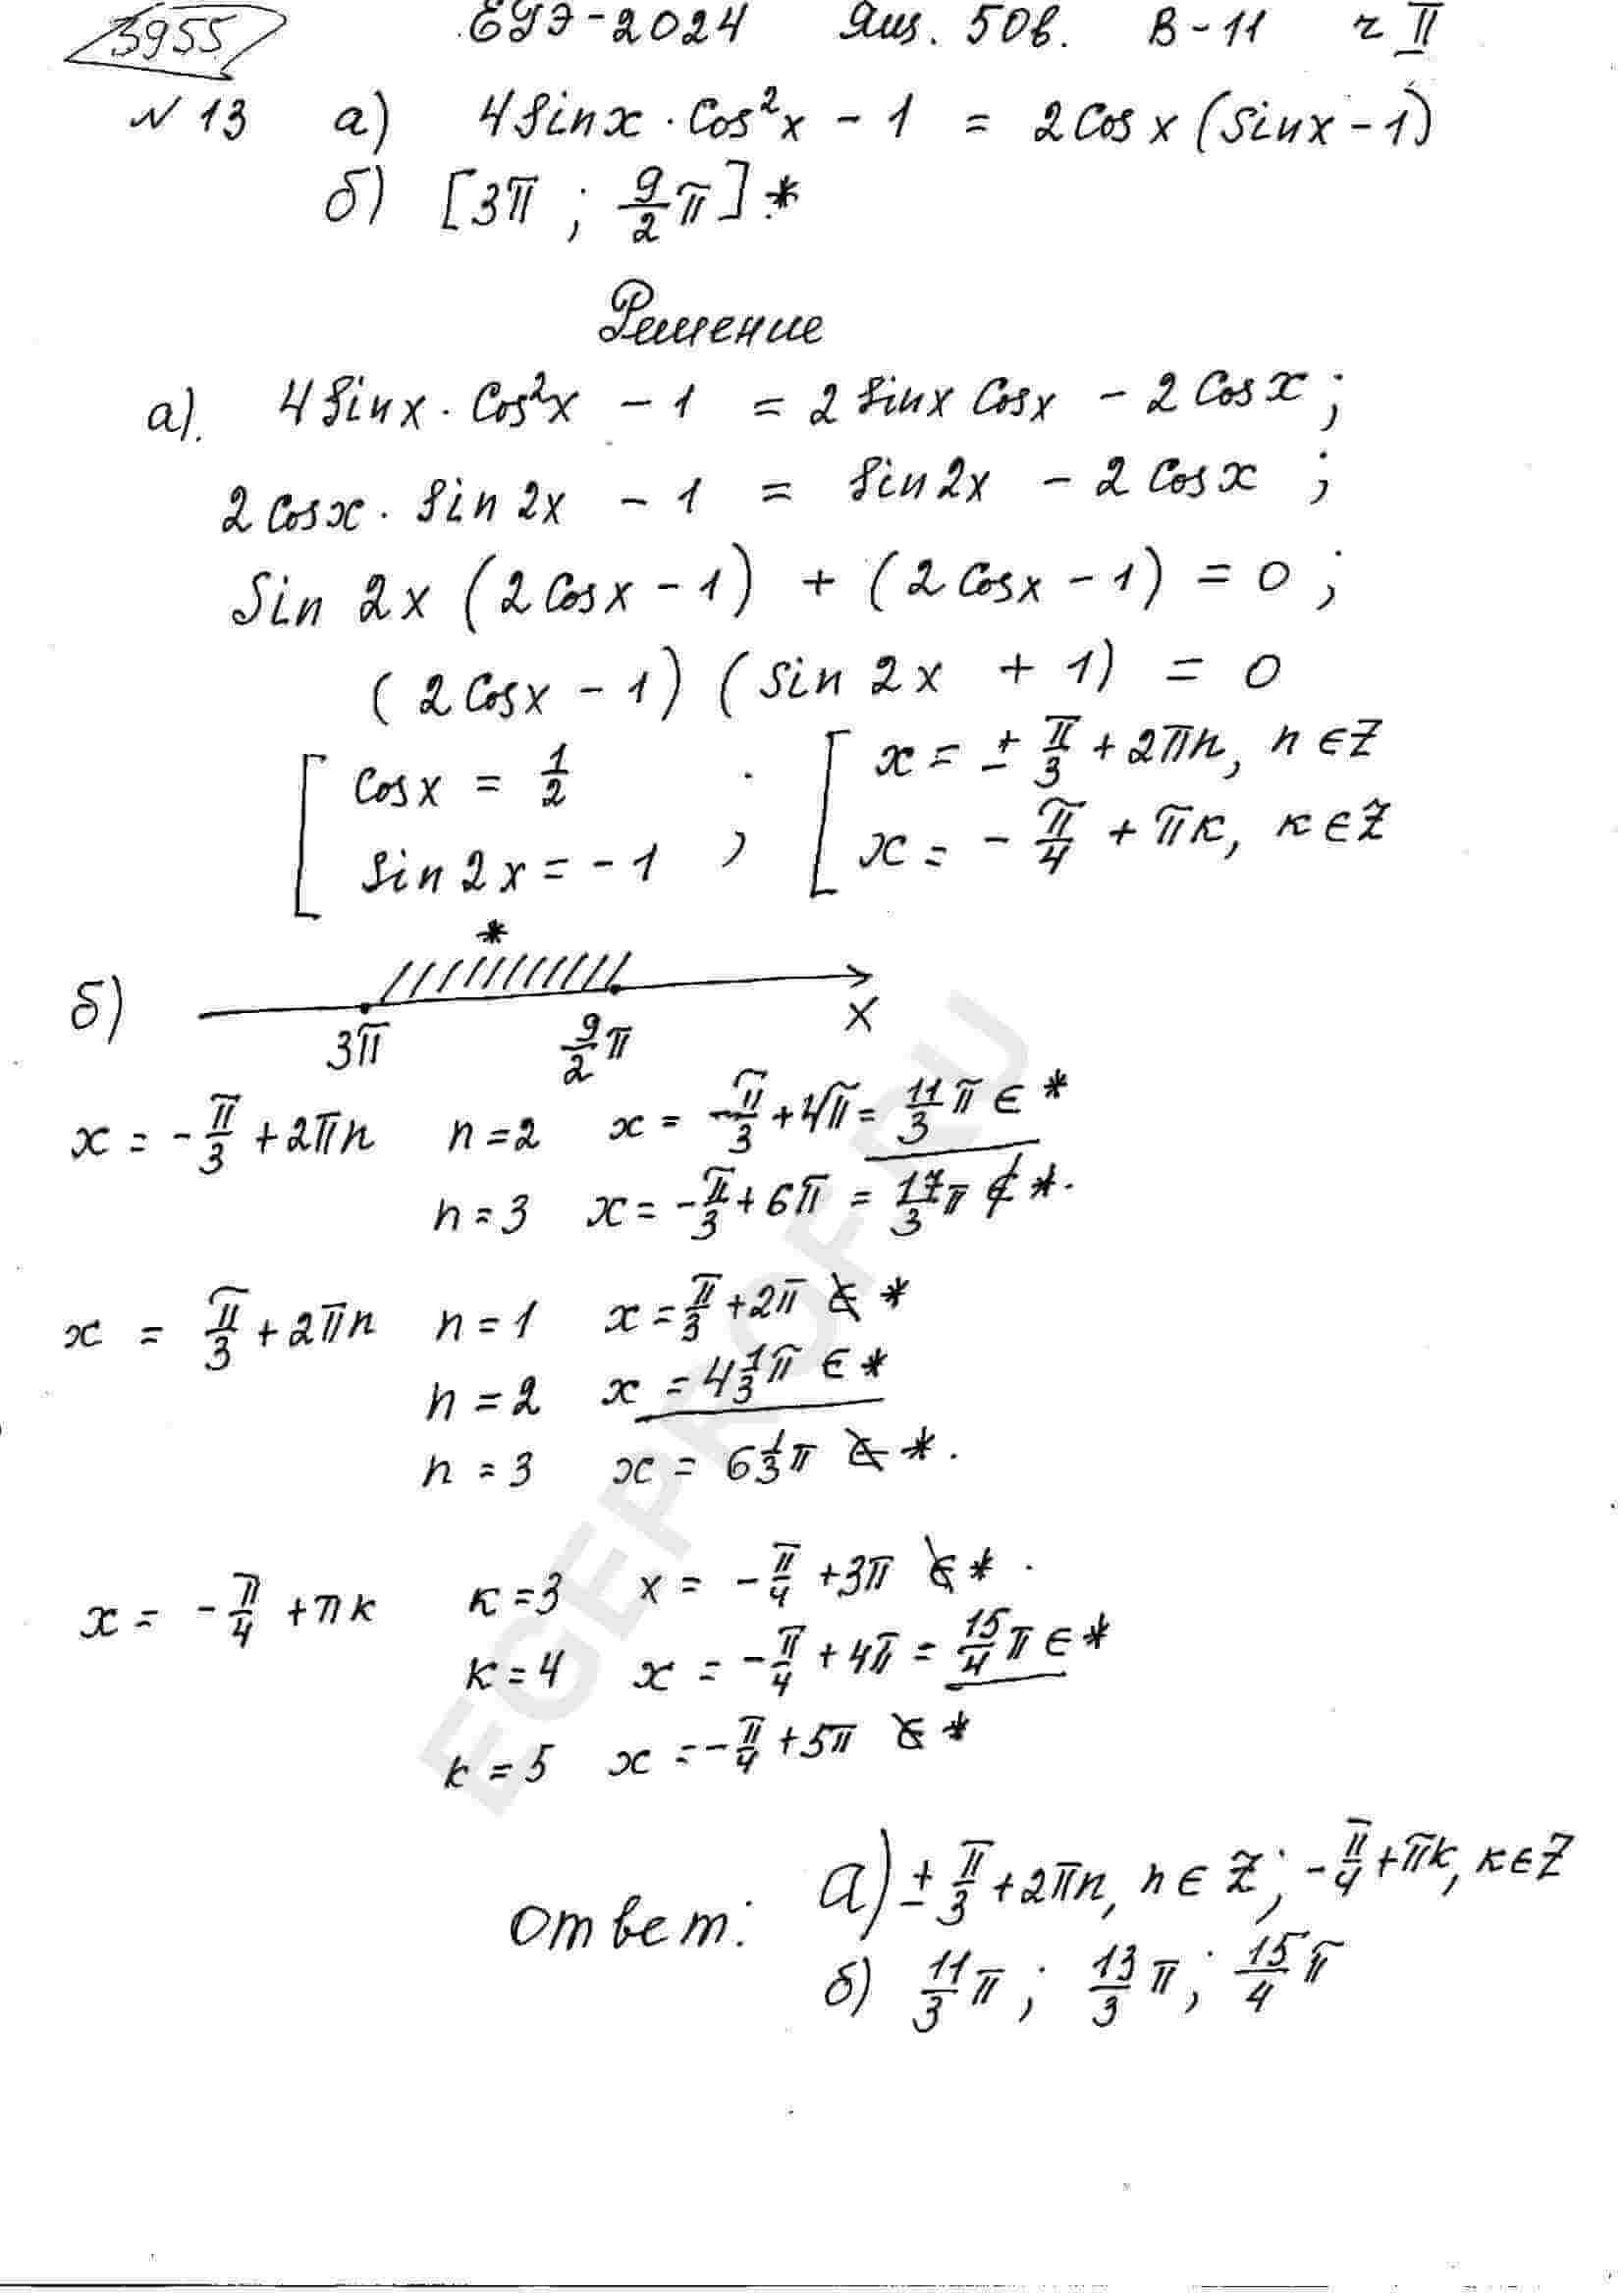 3955 ЕГЭ-2024 Ящ. 50в. В-11 ч II
N 13 а) 4sinx · cos²x - 1 = 2cosx (sinx - 1)
б) [3π ; 9/2 π] *
Решение
а). 4sinx · cos²x - 1 = 2sinx cosx - 2cosx ;
2cosx · sin2x - 1 = sin2x - 2cosx ;
Sin 2x (2cosx - 1) + (2cosx - 1) = 0 ;
(2cosx - 1) (sin 2x + 1) = 0
[ cosx = 1/2 ; [ x = ± π/3 + 2πn, n ∈ Z
sin2x = -1 x = - π/4 + πк, к ∈ Z
*
б) 3π 9/2 π x
x = - π/3 + 2πn n = 2 x = - π/3 + 4π = 11/3 π ∈ *
n = 3 x = - π/3 + 6π = 17/3 π ∉ *.
x = π/3 + 2πn n = 1 x = π/3 + 2π ∉ *
n = 2 x = 4 1/3 π ∈ *
n = 3 x = 6 1/3 π ∉ *.
x = - π/4 + πk к = 3 x = - π/4 + 3π ∉ *.
к = 4 x = - π/4 + 4π = 15/4 π ∈ *
k = 5 x = - π/4 + 5π ∉ *
Ответ: а) ± π/3 + 2πn, n ∈ Z ; - π/4 + πk, к ∈ Z
б) 11/3 π ; 13/3 π ; 15/4 π
EGEPROF.RU